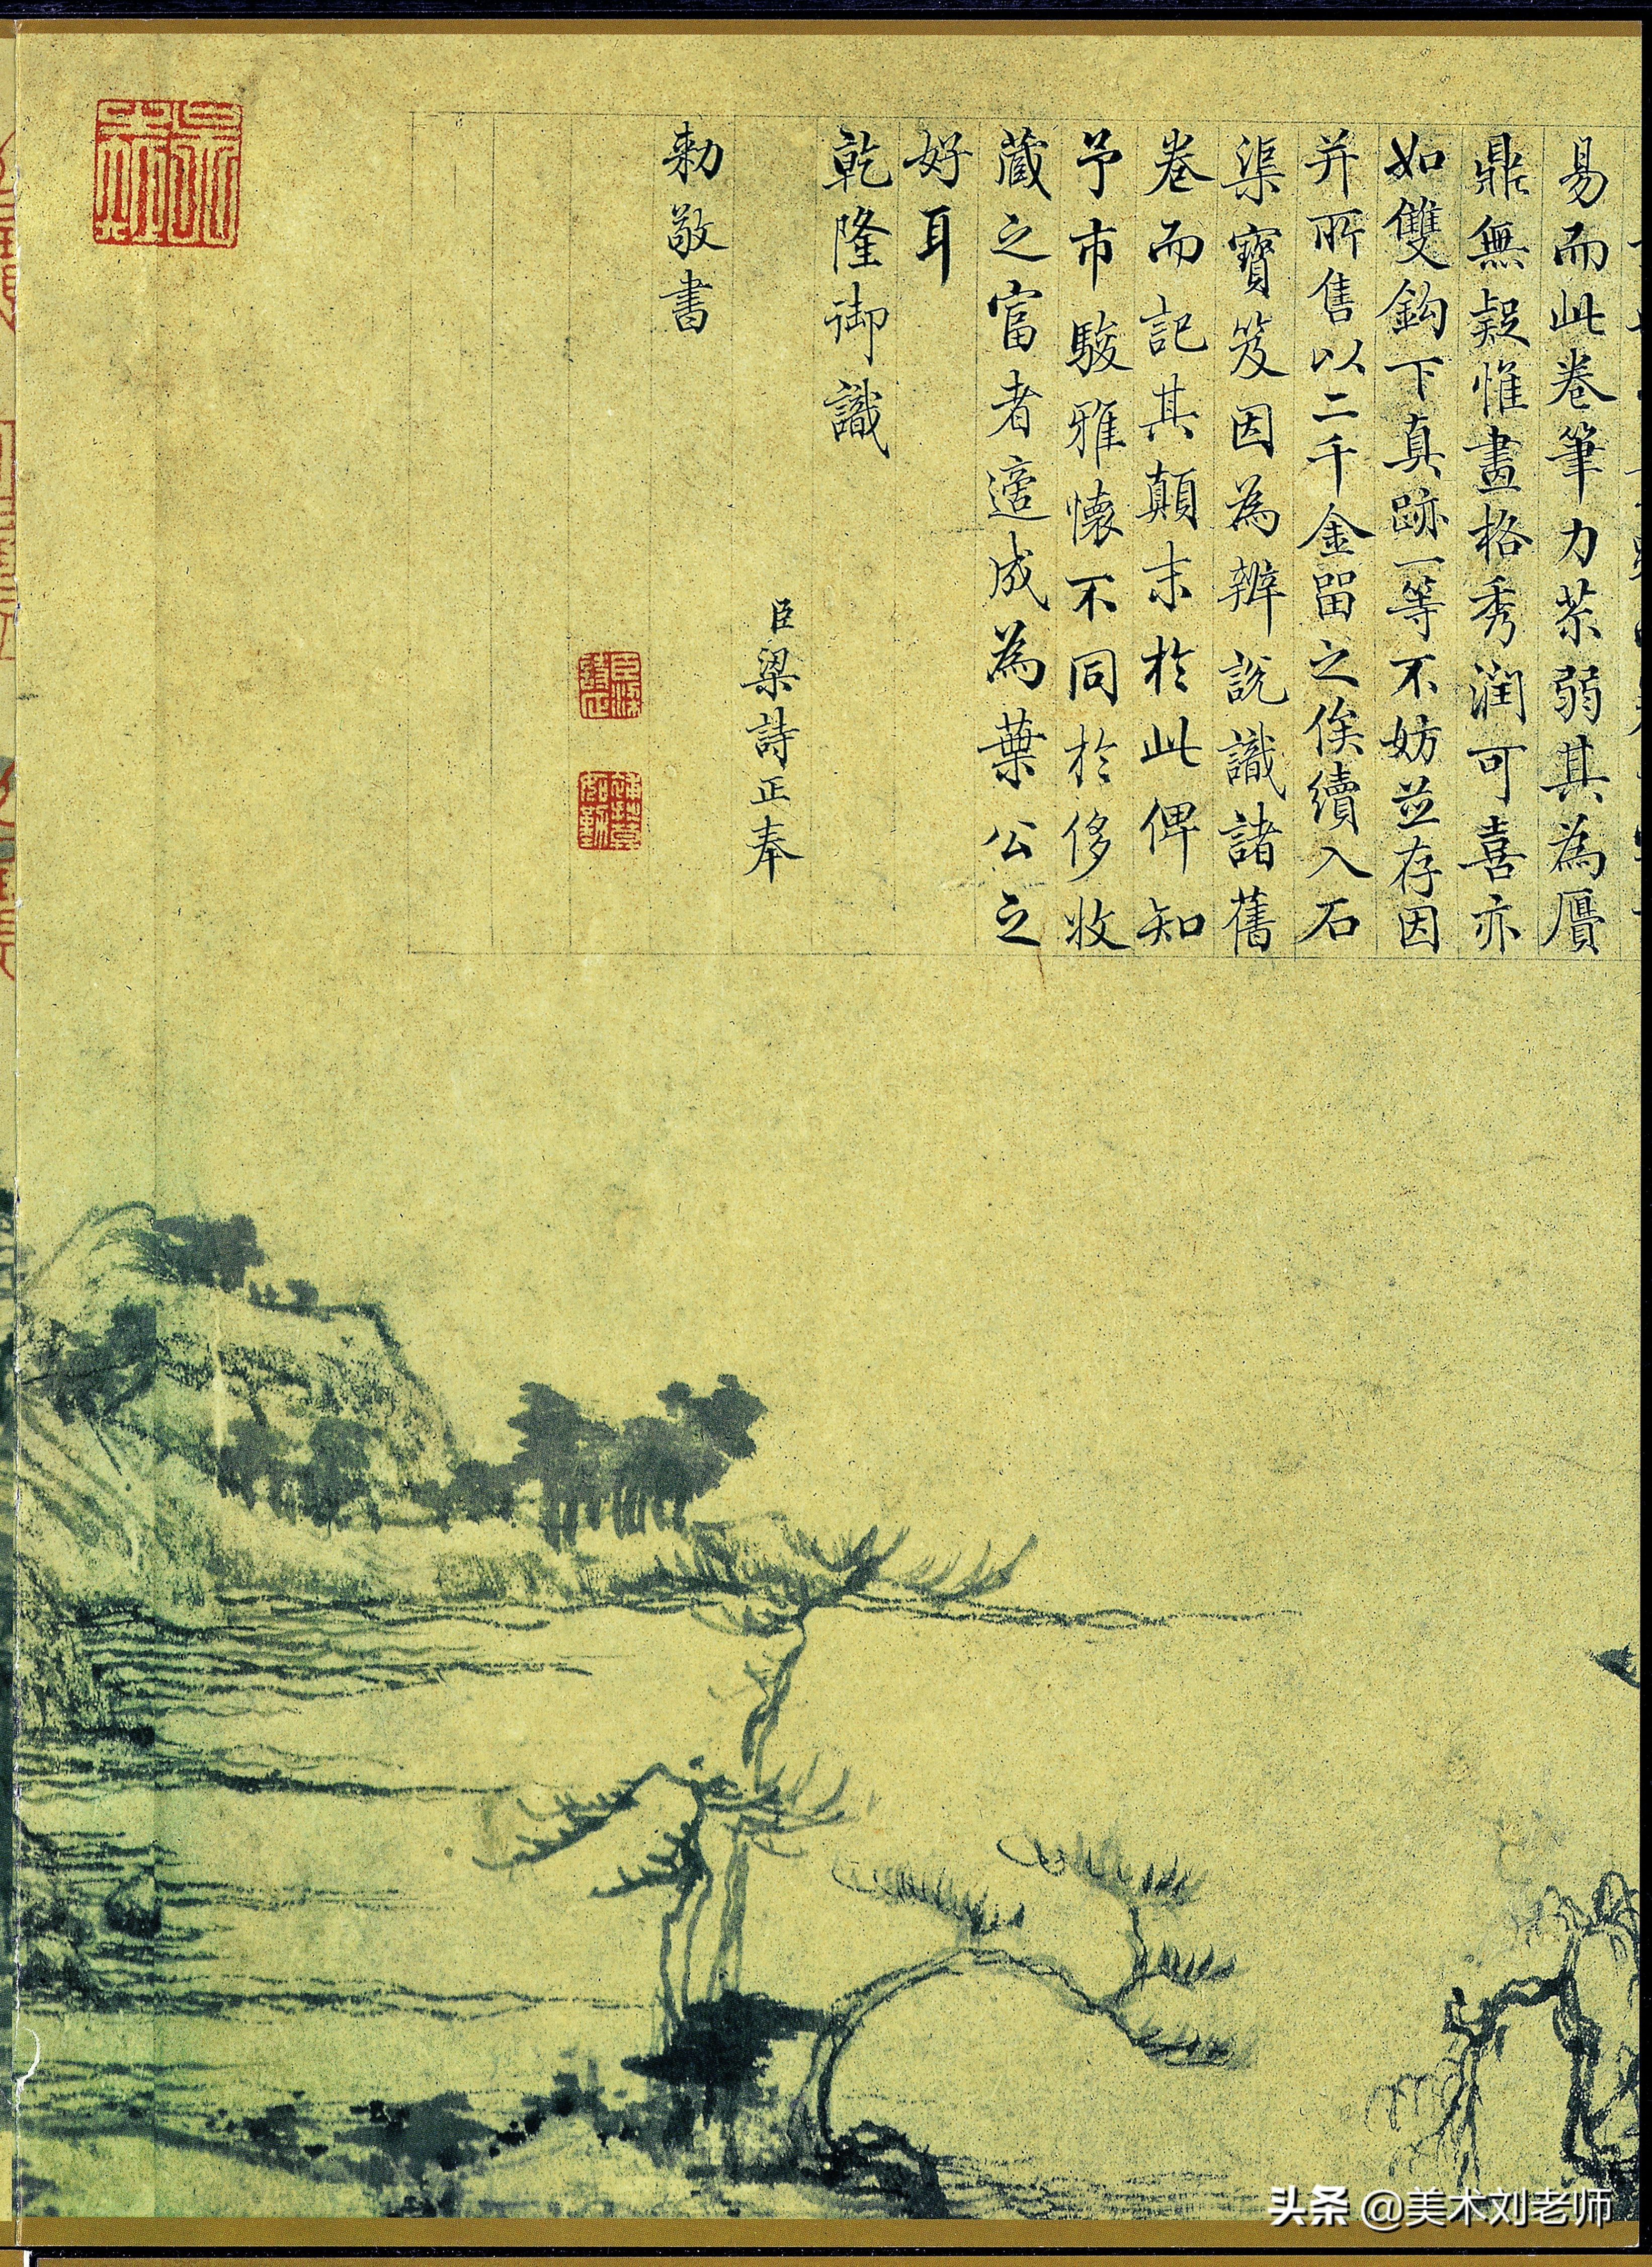 易而此卷筆力茶弱其為贋
鼎無疑惟畫格秀潤可喜亦
如雙鈎下真跡一等不妨並存因
并所售以二千金留之俟續入石
渠寶笈因為辨說識諸舊
卷而記其顛末於此俾知
予市駿雅懷不同於侈收
藏之富者適成為葉公之
好耳
乾隆御識
臣梁詩正奉
勅敬書
头条 @美术刘老师